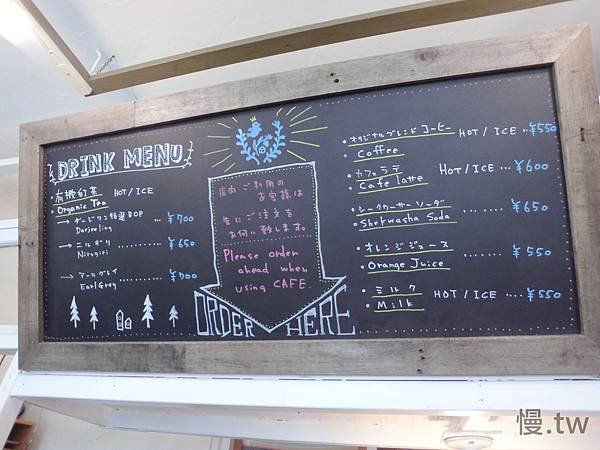 DRINK MENU
・有機紅茶 HOT / ICE
・Organic Tea
→ダージリン特選BOP ……… ¥700
Darjeeling
→ニルギリ ………… ¥650
Nirugiri
→アールグレイ ¥700
Earl Grey
店内ご利用の
お客様は
先にご注文を
お伺い致します。
Please order
ahead when
using CAFE.
ORDER HERE
・オリジナルブレンドコーヒー HOT / ICE … ¥550
・Coffee
・カフェラテ HOT / ICE … ¥600
・Cafe latte
・シークワーサーソーダ …… ¥650
・Shekwasha Soda
・オレンジジュース …… ¥550
・Orange Juice
・ミルク HOT / ICE …… ¥550
・Milk
慢.tw